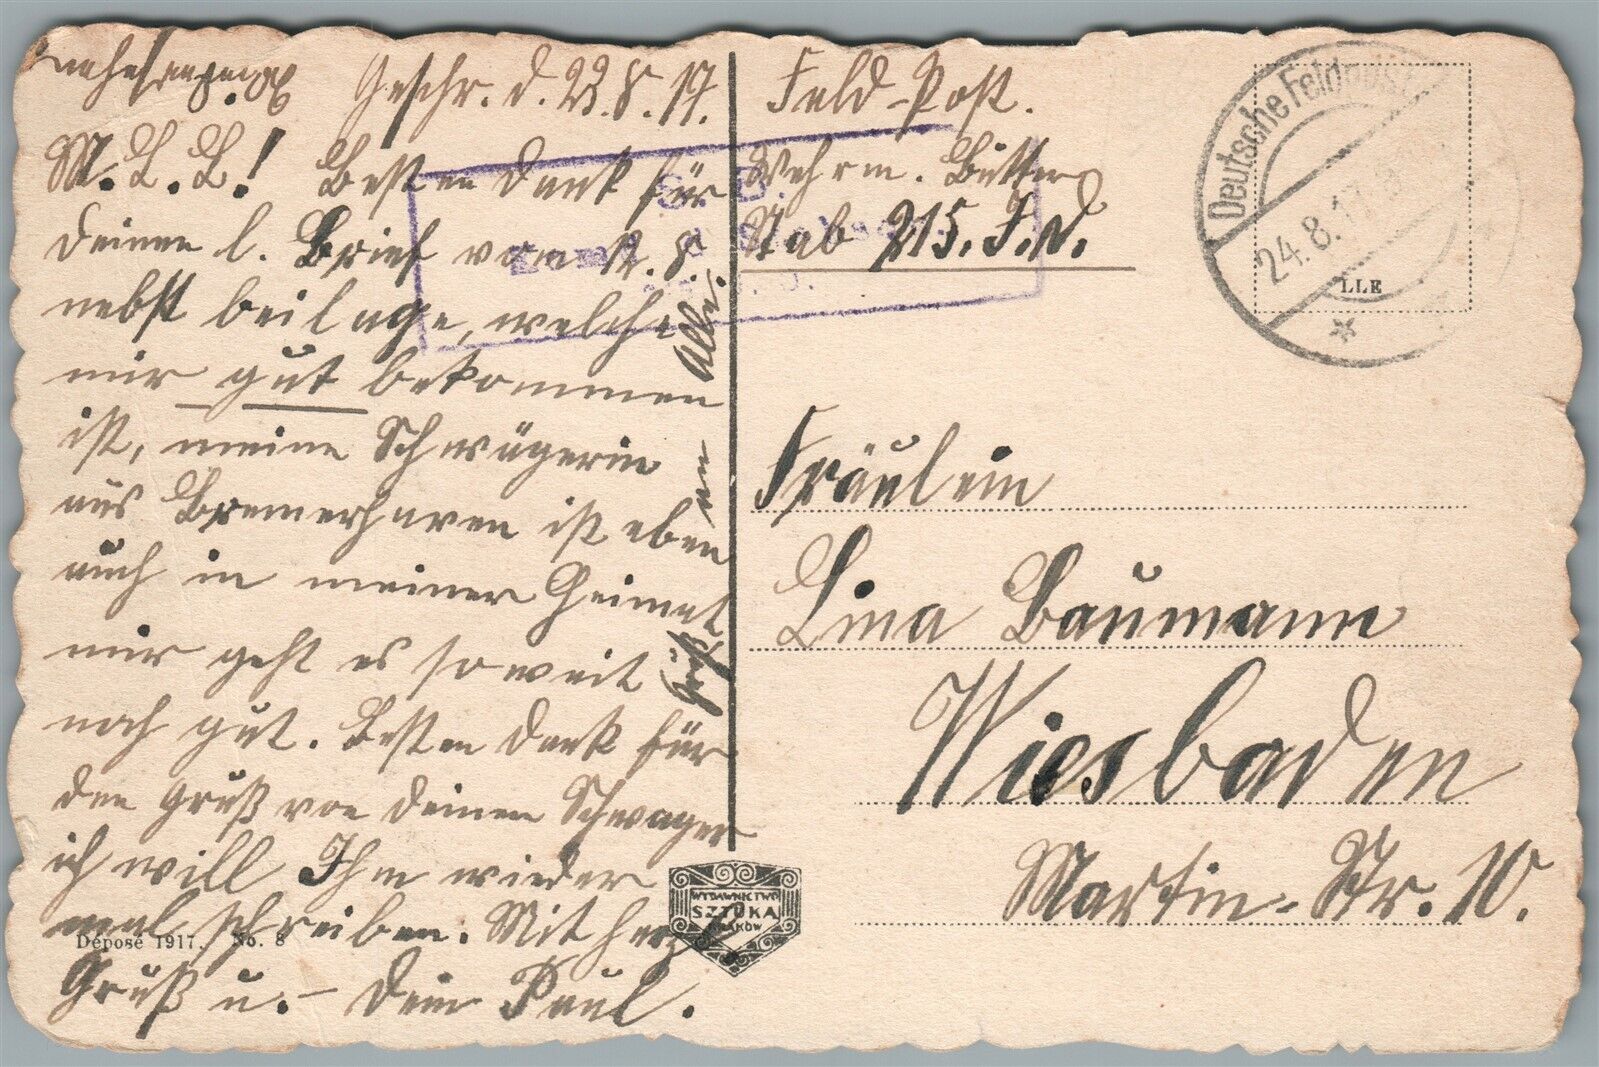 Geschr. d. 23.8.17.
M. L. L! Besten Dank für
deinen l. Brief vom 18. 8.
nebst beilage, welche
mir gut bekommen
ist, meine Schwägerin
aus Bremerhaven ist eben
auch in meiner Heimat
mir geht es soweit
noch gut. Besten Dank für
den Gruß von deinen Schwager
ich will Ihm wieder
mal schreiben. Mit herzl.
Gruß u. – Dein Paul.
Gruß an Alle.
Feld-Post.
Wehrm.
Stab 215. I.D.
S. B.
Deutsche Feldpost
24.8.17
Fräulein
Lina Baumann
Wiesbaden
Martin-Str. 10.
WYDAWNICTWO
SZTUKA
KRAKÓW
Déposé 1917. No. 8